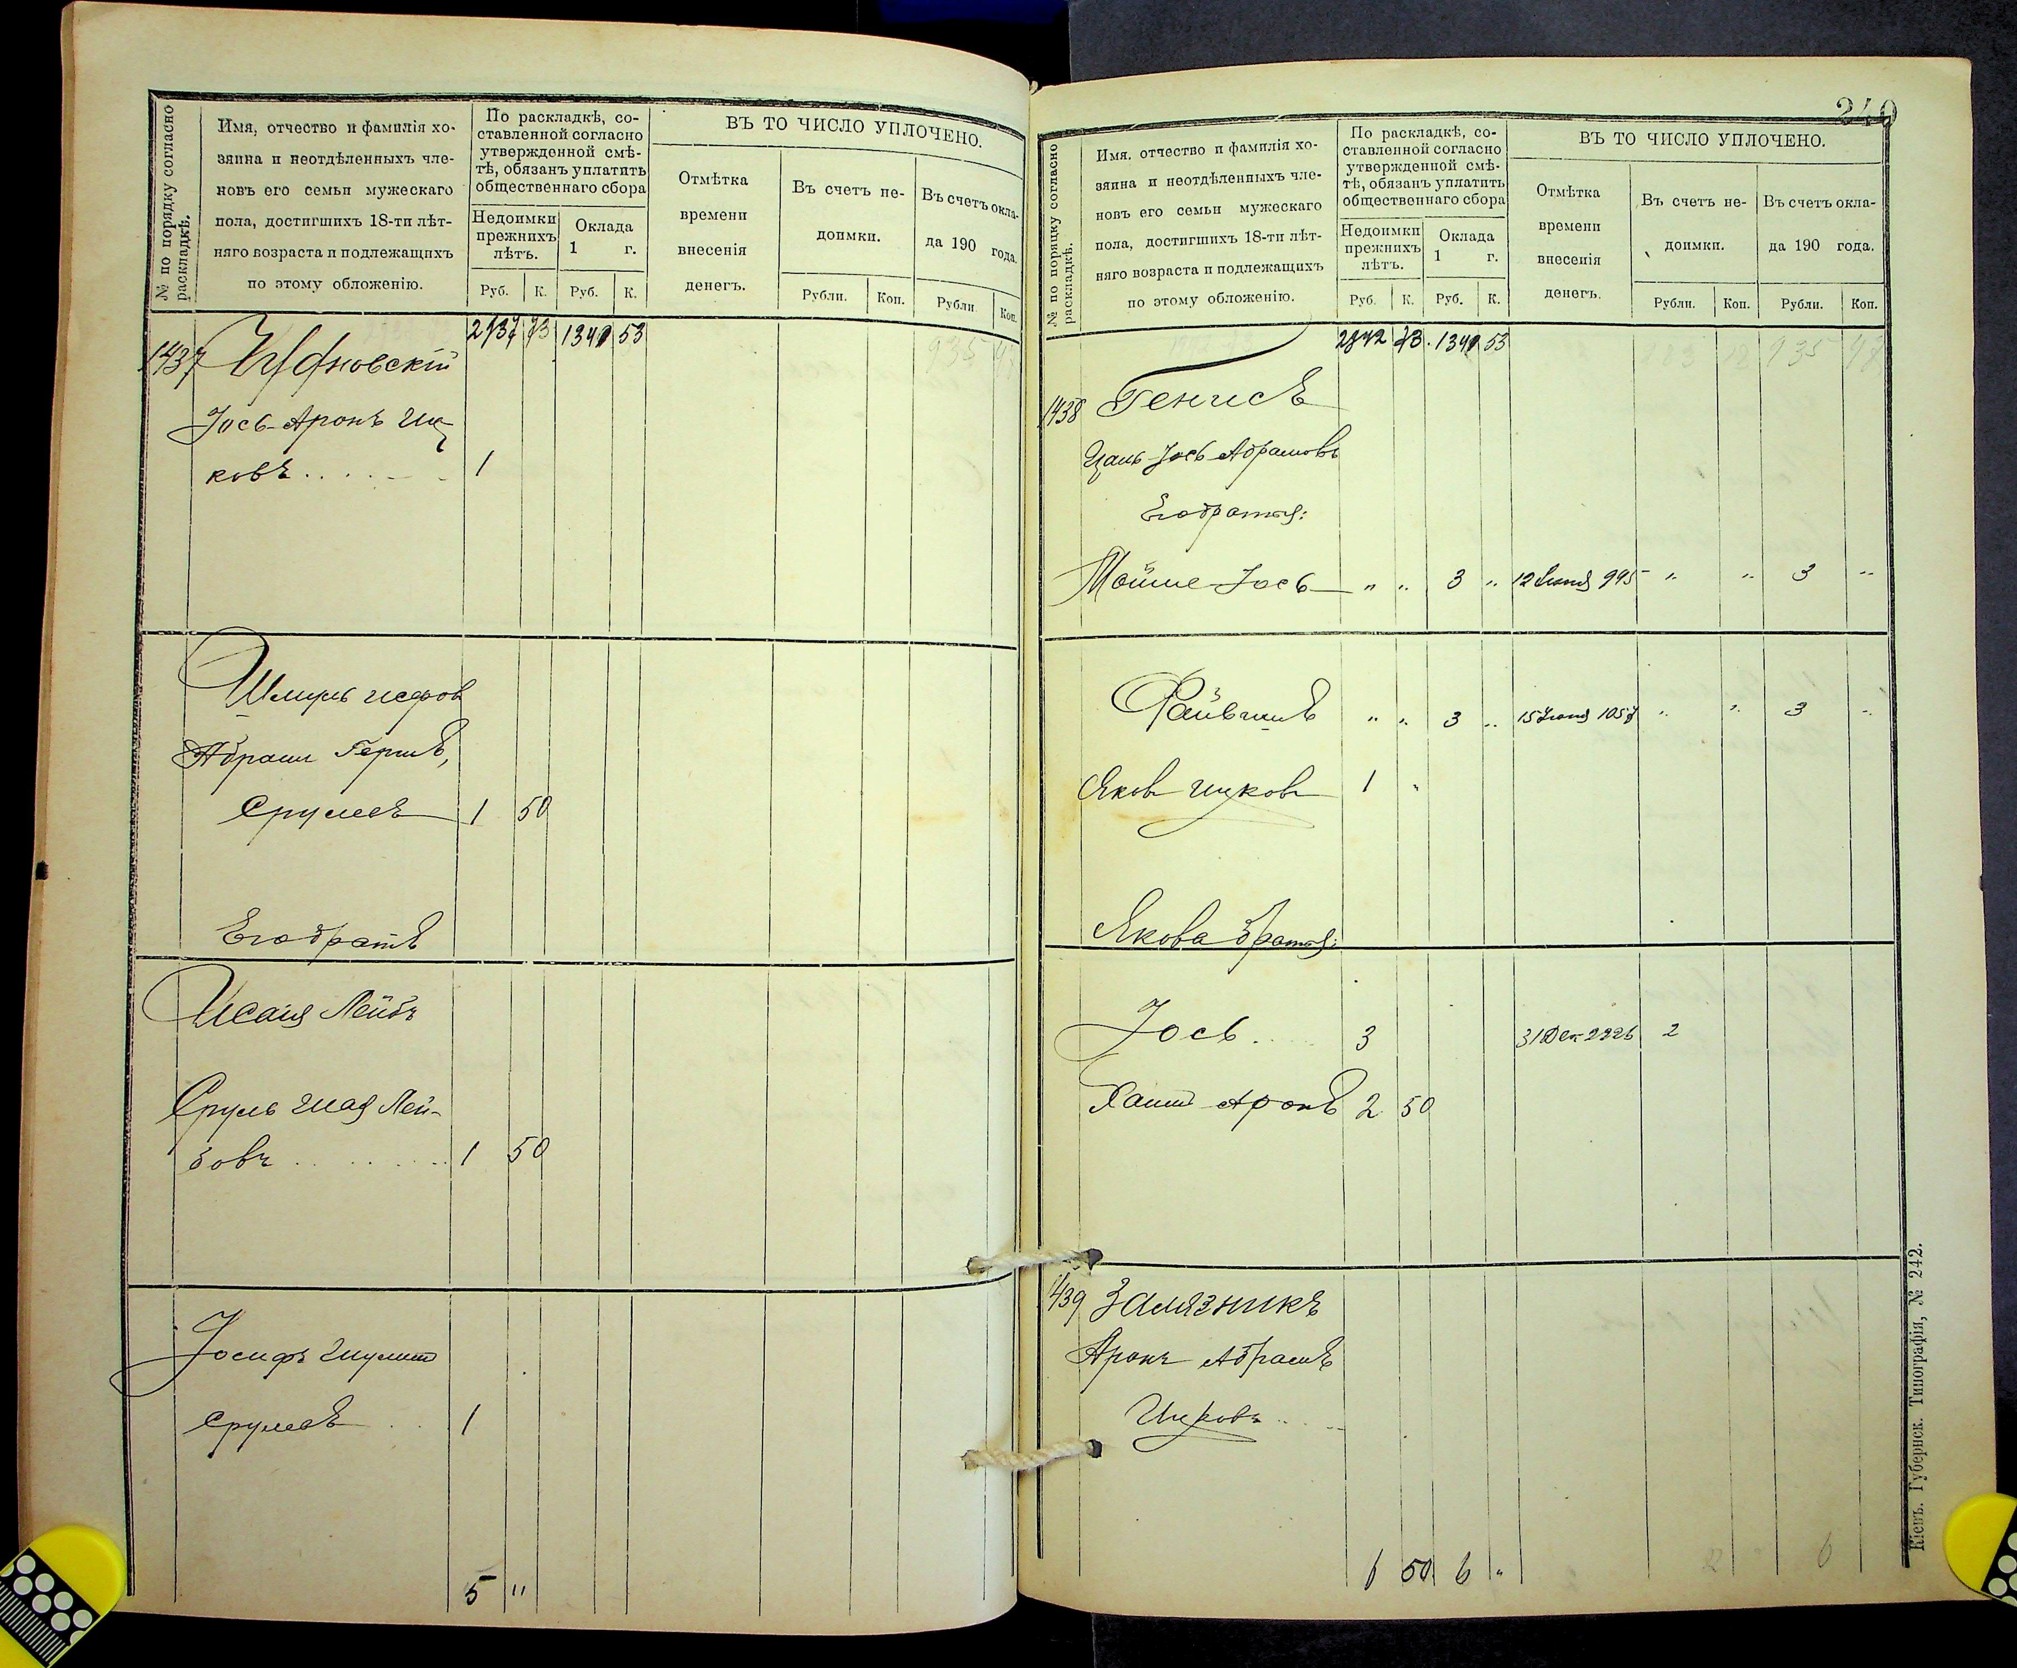 № по порядку согласно раскладкѣ.
Имя, отчество и фамилія хо-
зяина и неотдѣленныхъ чле-
новъ его семьи мужескаго
пола, достигшихъ 18-ти лѣт-
няго возраста и подлежащихъ
по этому обложенію.
По раскладкѣ, со-
ставленной согласно
утвержденной смѣ-
тѣ, обязанъ уплатить
общественнаго сбора
Недоимки
прежнихъ
лѣтъ.
Оклада
1 г.
Руб. К. Руб. К.
ВЪ ТО ЧИСЛО УПЛОЧЕНО.
Отмѣтка
времени
внесенія
денегъ.
Въ счетъ не-
доимки.
Рубли. Коп.
Въ счетъ окла-
да 190 года.
Рубли Коп.
2837 73 1349 53
1437
Іось-Аронъ Иц
ковъ 1
Абрамъ Гершъ,
Срулевъ 1 50
Его братъ
Исаія Лейбъ
Сруль Шая Лей-
бовъ 1 50
Іосифъ Шулим
Срулевъ 1
5 "
240
№ по порядку согласно раскладкѣ.
Имя, отчество и фамилія хо-
зяина и неотдѣленныхъ чле-
новъ его семьи мужескаго
пола, достигшихъ 18-ти лѣт-
няго возраста и подлежащихъ
по этому обложенію.
По раскладкѣ, со-
ставленной согласно
утвержденной смѣ-
тѣ, обязанъ уплатить
общественнаго сбора
Недоимки
прежнихъ
лѣтъ.
Оклада
1 г.
Руб. К. Руб. К.
ВЪ ТО ЧИСЛО УПЛОЧЕНО.
Отмѣтка
времени
внесенія
денегъ.
Въ счетъ не-
доимки.
Рубли. Коп.
Въ счетъ окла-
да 190 года.
Рубли. Коп.
2842 73 1349 53
1438 Генисъ
Іось Абрамовъ
Его братья:
Мойше-Іось " " 3 " 12 Іюня 995 " " 3 "
Файвишъ " " 3 " 15 Іюня 1057 " " 3 "
Яковъ Ицковъ 1 "
Якова братья:
Іось 3 31 Дек 2226 2
Хаимъ Аронъ 2 50
1439 Залязникъ
Аронъ Абрамъ
Ицковъ
6 50 6 "
2 6
Кіевъ. Губернск. Типографія, № 242.